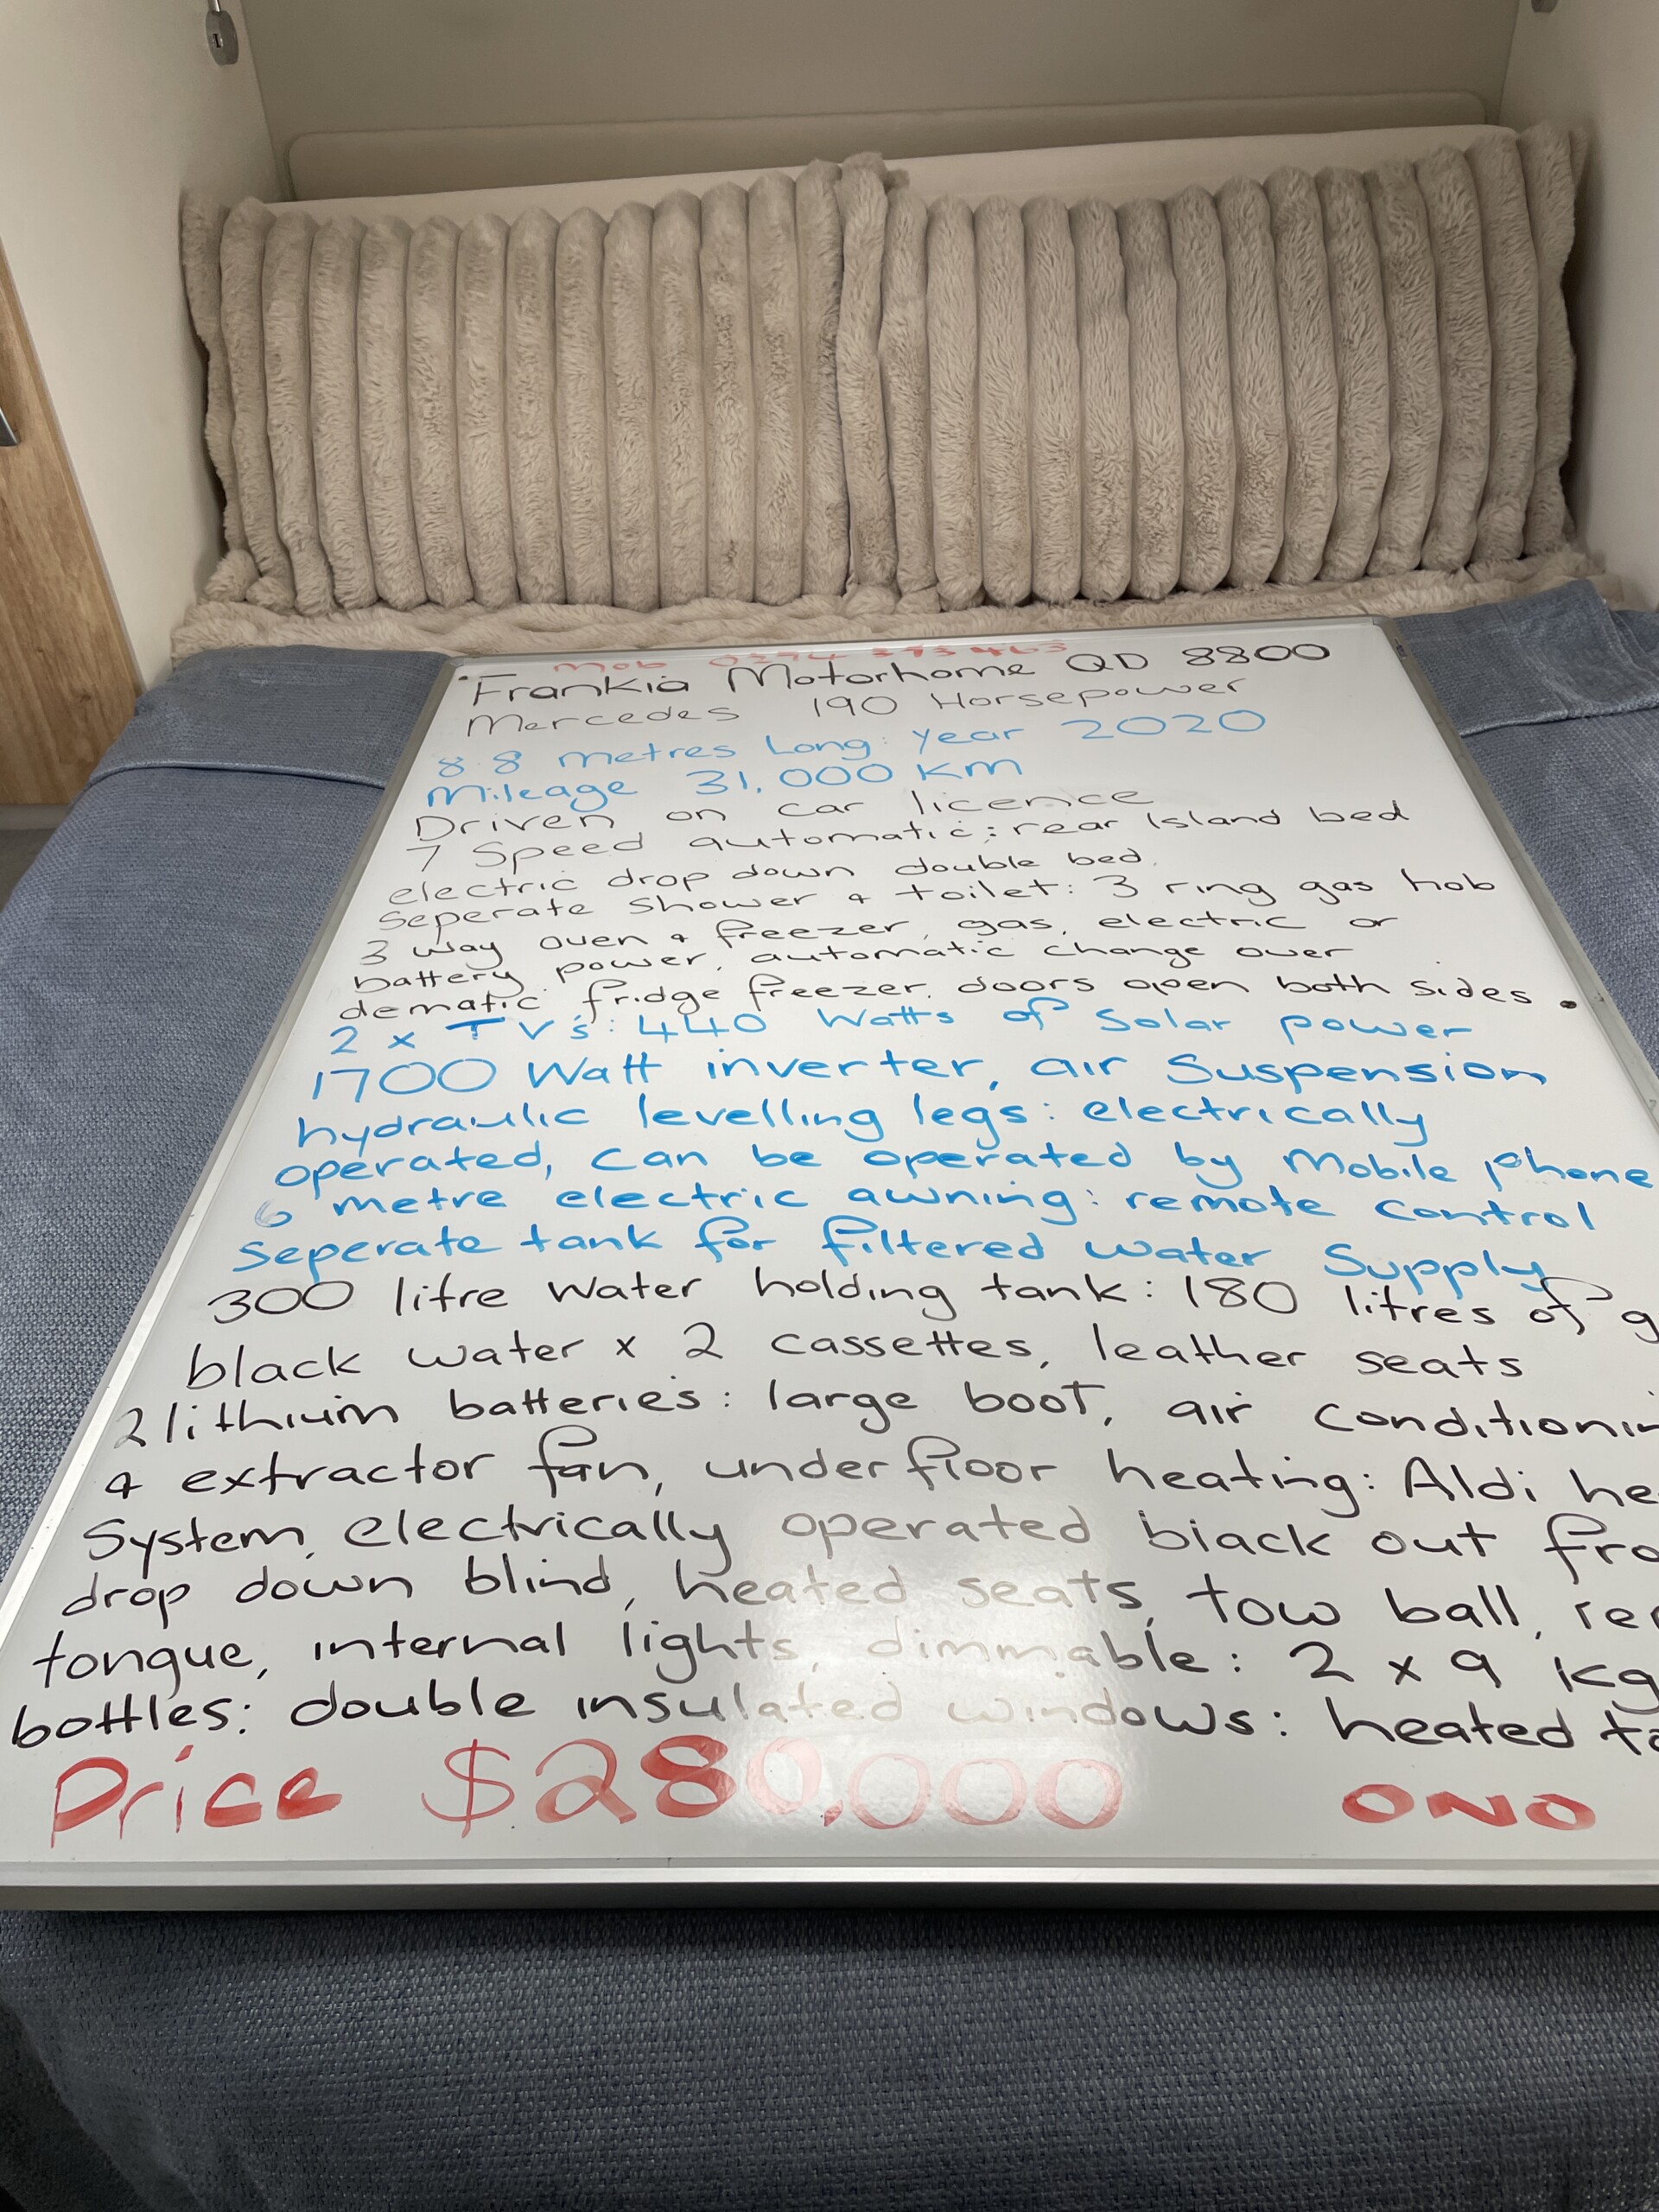 mob
Frankia Motorhome QD 8800
Mercedes 190 Horsepower
8.8 metres Long: year 2020
Mileage 31,000 KM
Driven on car licence
7 Speed automatic: rear Island bed
electric drop down double bed.
Seperate Shower & toilet: 3 ring gas hob
3 way oven & freezer, gas, electric or
battery power, automatic change over
dematic fridge freezer. doors open both sides.
2 x TV's: 440 Watts of Solar power
1700 Watt inverter, air Suspension
hydraulic levelling legs: electrically
operated, can be operated by Mobile phone
6 metre electric awning: remote control
Seperate tank for filtered water Supply
300 litre Water holding tank: 180 litres of g
black water x 2 cassettes, leather seats
2 lithium batteries: large boot, air conditionin
& extractor fan, underfloor heating: Aldi he
System, electrically operated black out fro
drop down blind, heated seats, tow ball, rem
tongue, internal lights, dimmable: 2 x 9 kg
bottles: double insulated windows: heated ta
Price $280,000 ONO